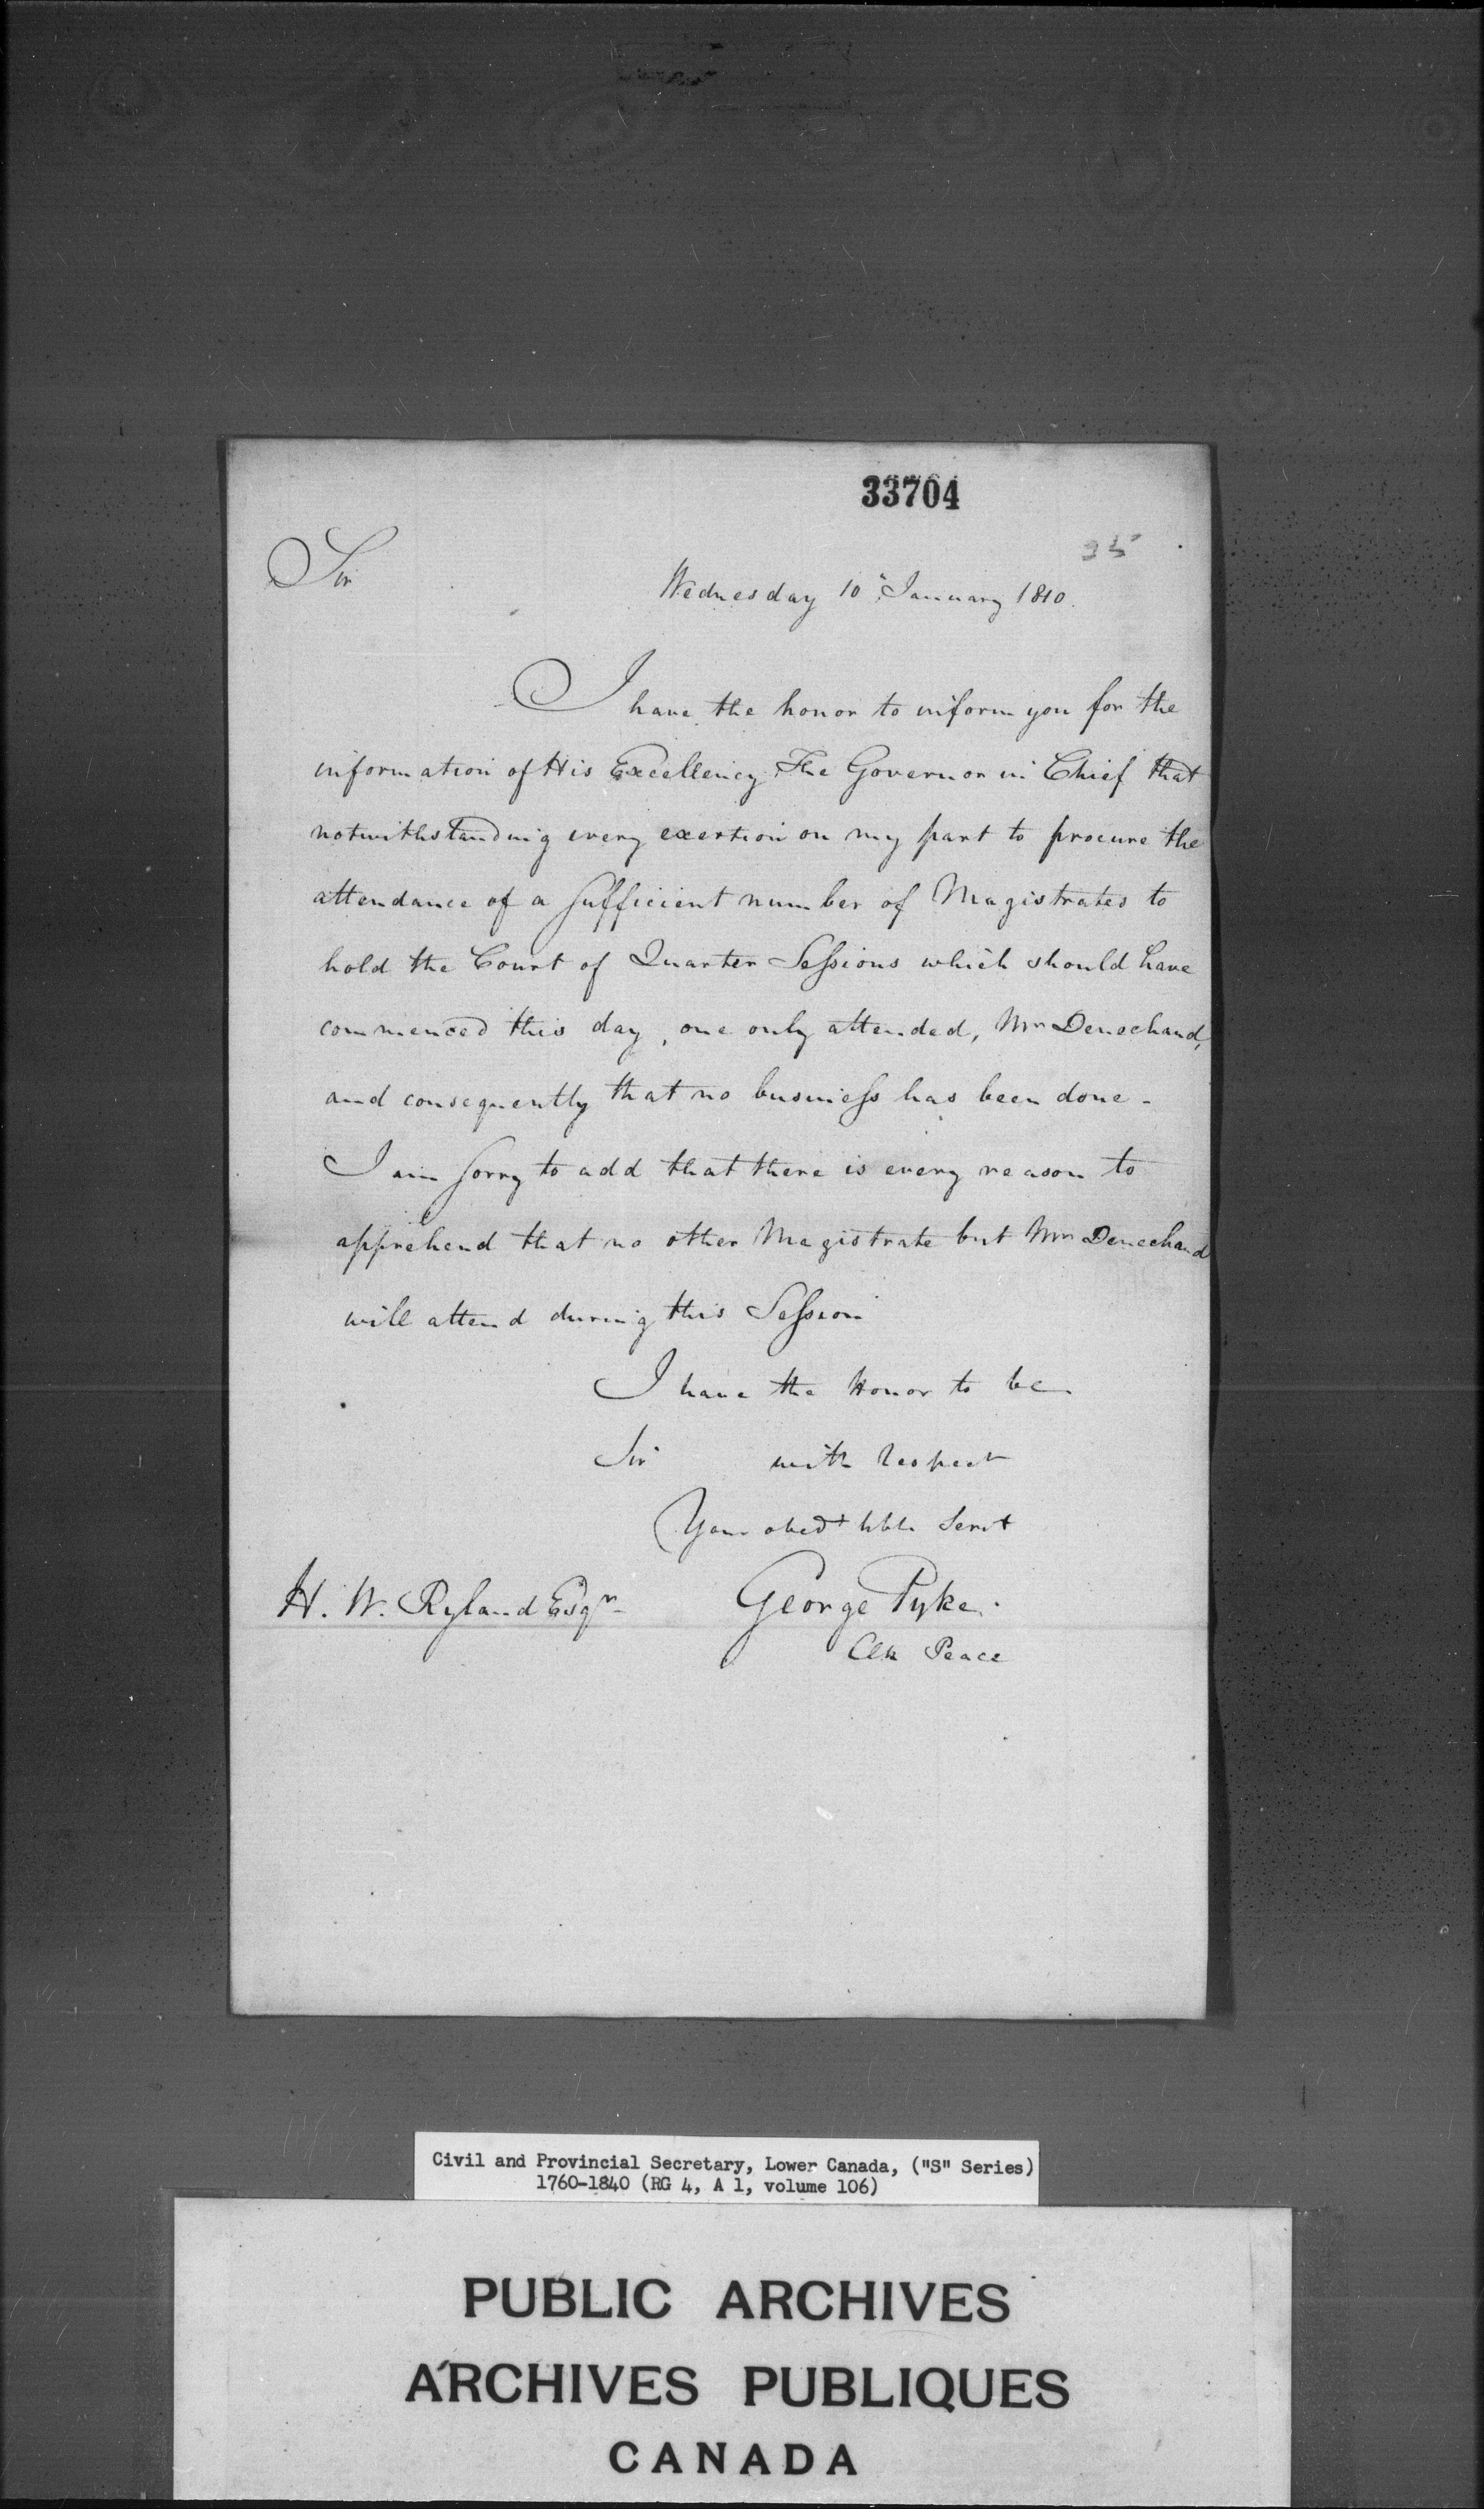 33704
35
Sir
Wednesday 10th January 1810.
I have the honor to inform you for the
information of His Excellency The Governor in Chief that
notwithstanding every exertion on my part to procure the
attendance of a sufficient number of Magistrates to
hold the Court of Quarter Sessions which should have
commenced this day, one only attended, Mr Denechaud,
and consequently that no business has been done -
I am sorry to add that there is every reason to
apprehend that no other Magistrate but Mr Denechaud
will attend during this Session
I have the Honor to be
Sir with respect
Your obedt hble Servt
H. W. Ryland Esqr George Pyke.
Clk Peace
Civil and Provincial Secretary, Lower Canada, ("S" Series)
1760-1840 (RG 4, A 1, volume 106)
PUBLIC ARCHIVES
ARCHIVES PUBLIQUES
CANADA